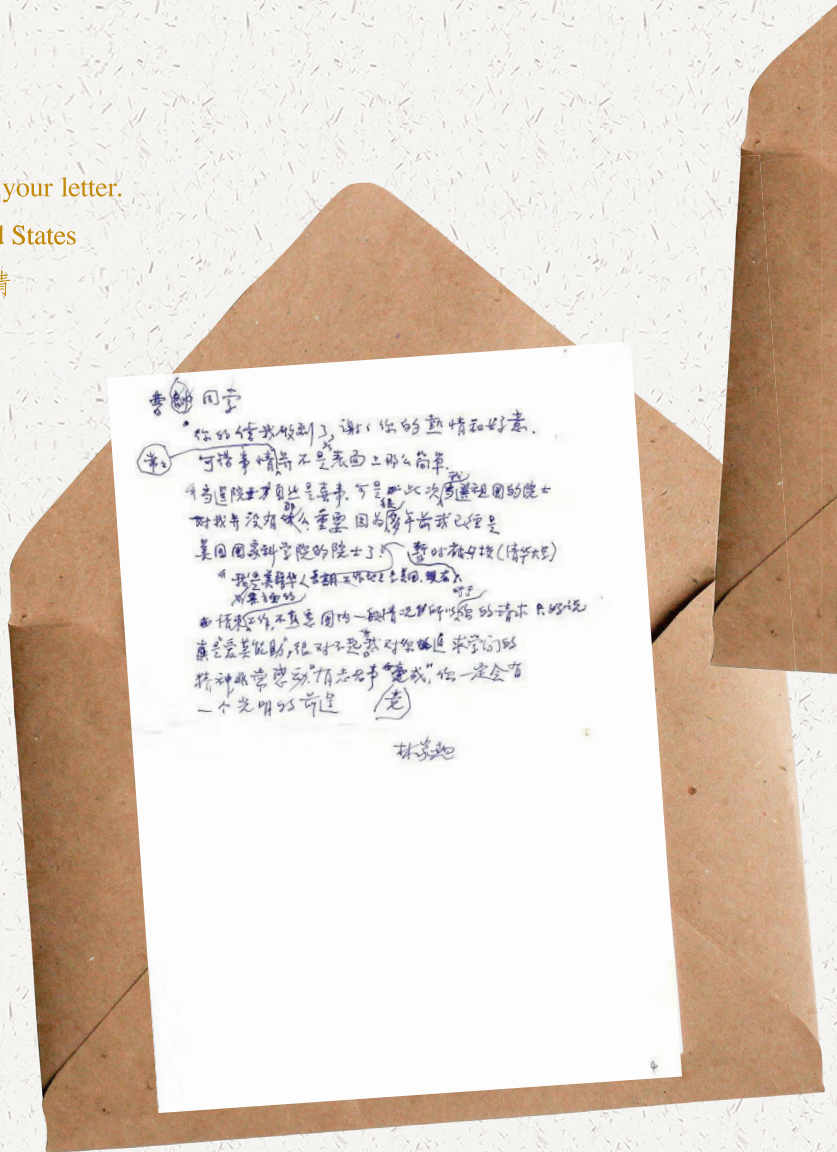 your letter.
d States
情
曹帥同学
你的信我收到了,谢谢你的熱情和好意.
常常
可惜事情并不是表面上那么简单.
当選院士自然是喜事,可是此次当選祖国的院士
我
对我并没有那么重要因为很多年前我已经是
美国国家科学院的院士了! 暂时在母校(清华大学)
我是美籍华人長期工作地点在美国,現在
对于
工作,不熟悉国内一般情况所以你的请求只好说
真是"爱莫能助",很对不起我对你追求学问的
精神非常感动"有志者事竟成",你一定会有
一个光明的前途
竟
林家翘
4